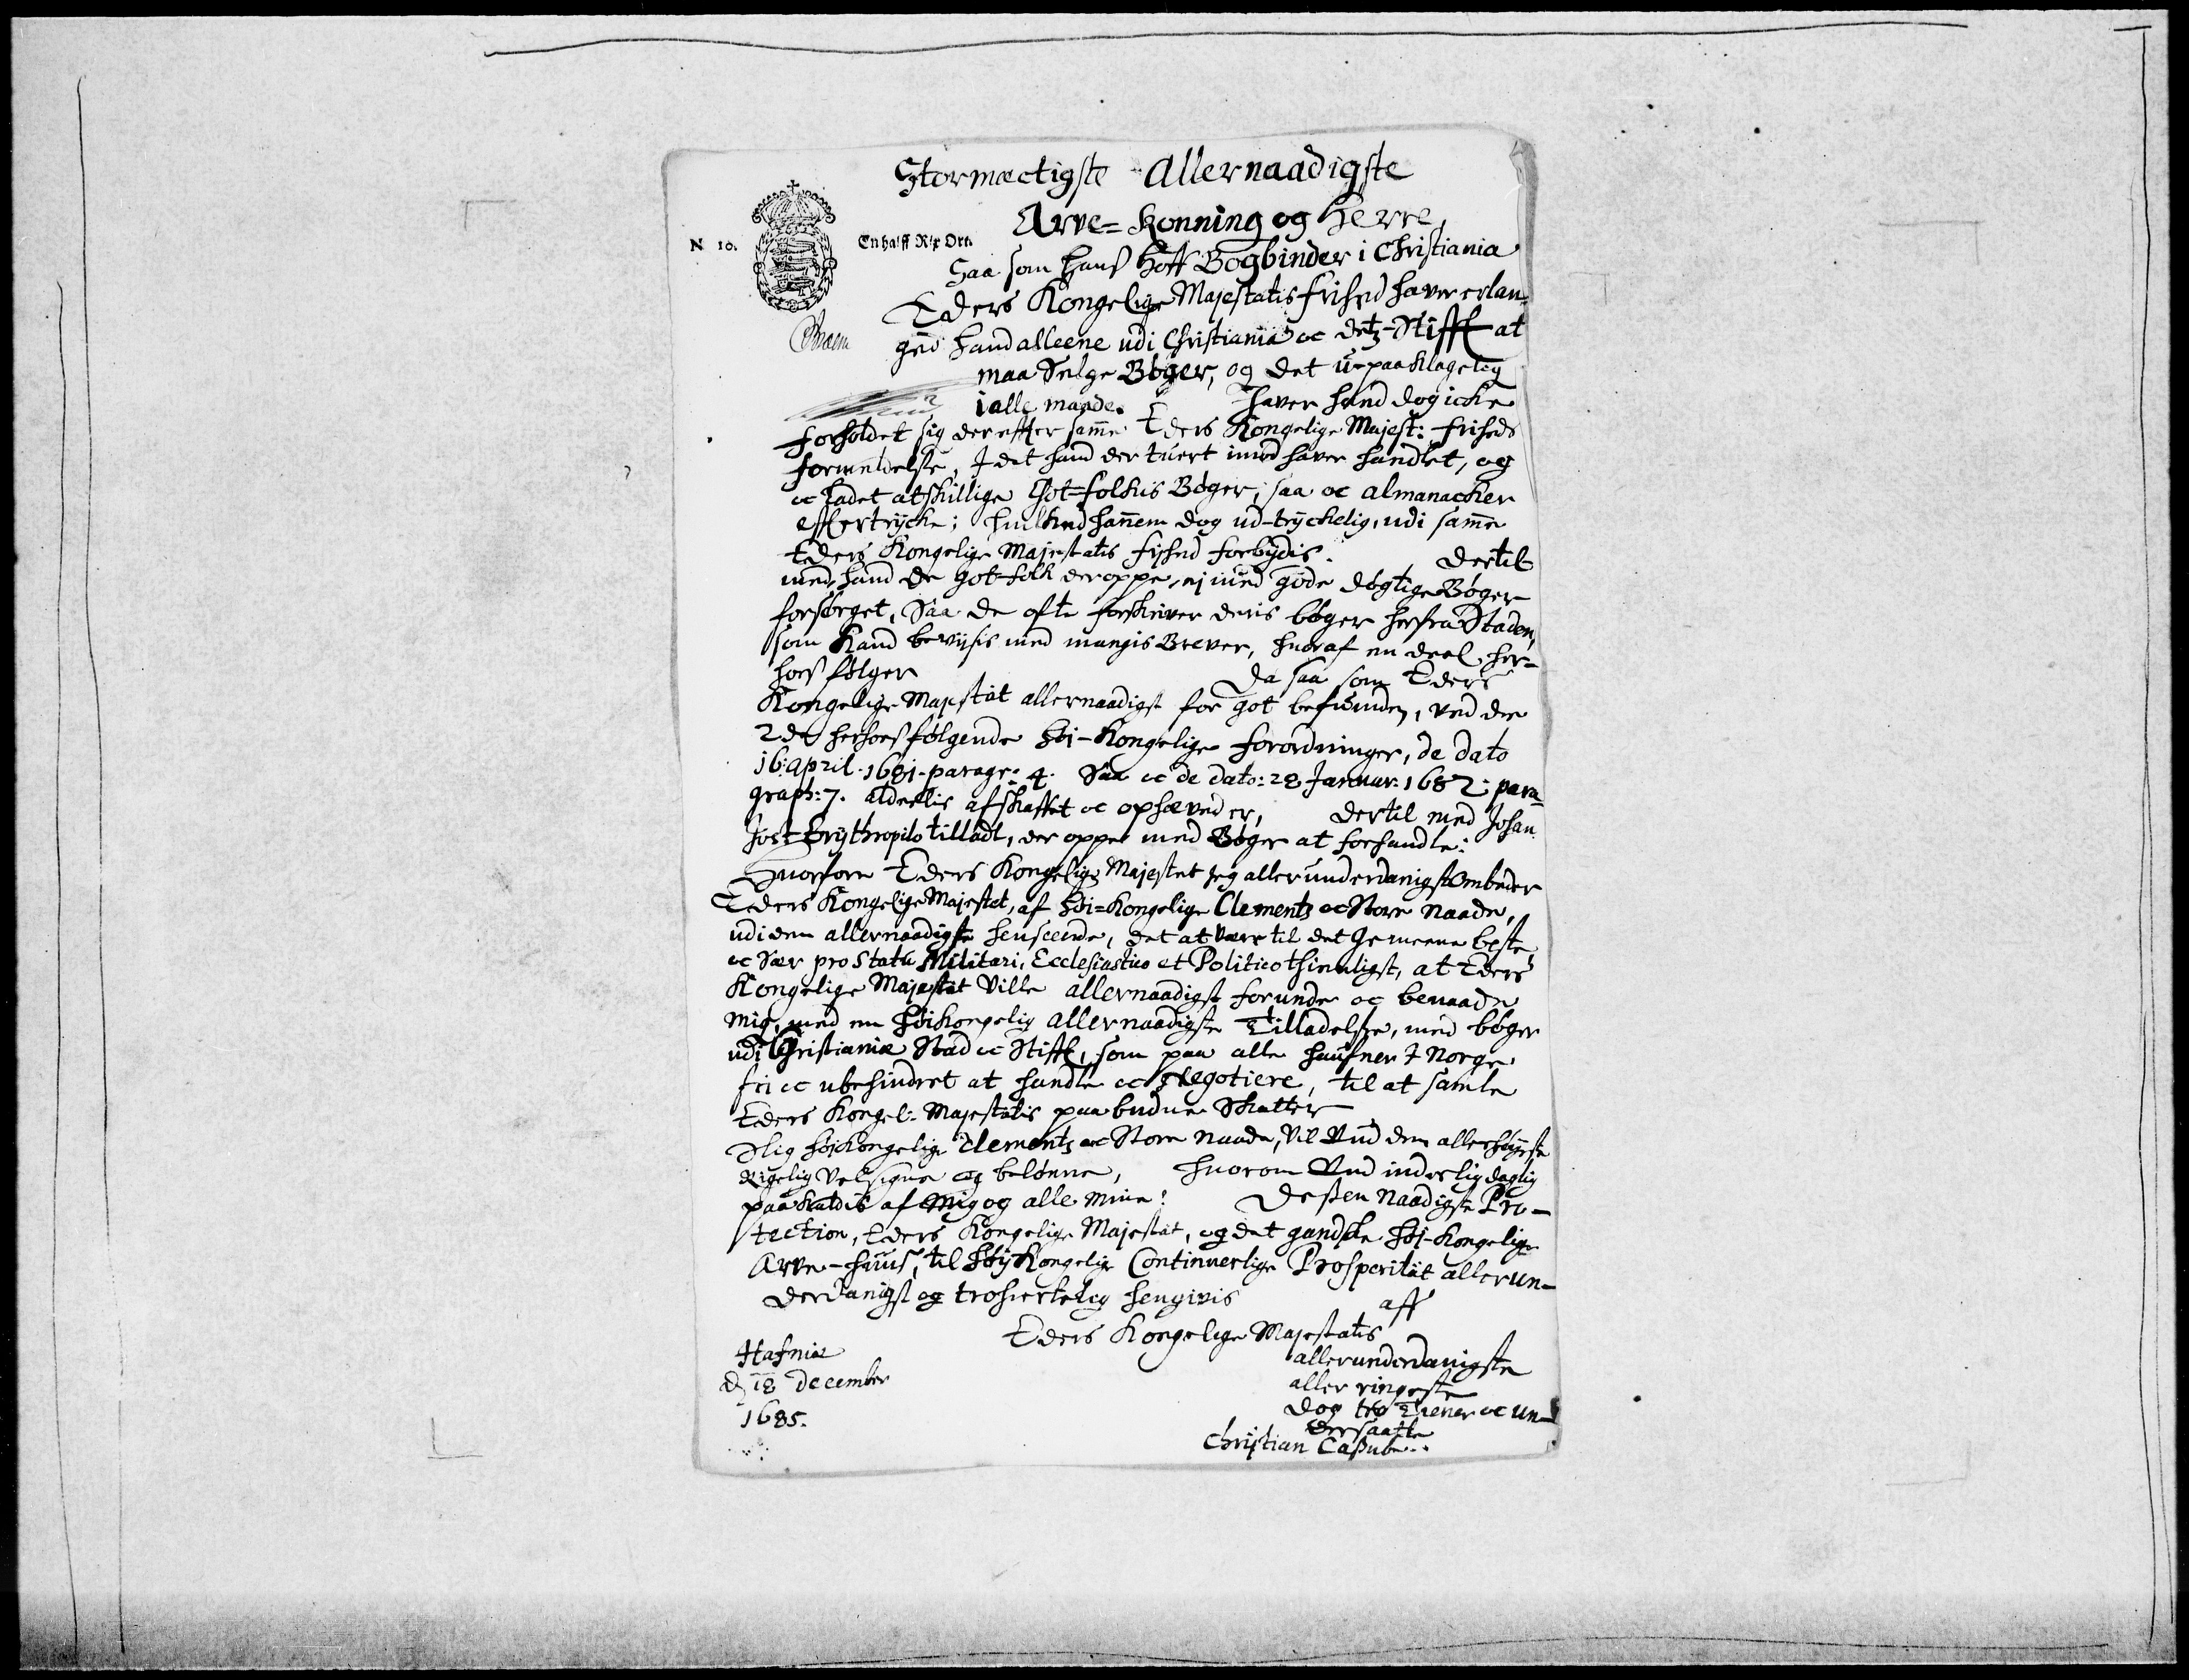 Stormectigste Allernaadigste
Arve= Konning og Herre,
N 10.
En halff Rix Ort.
Saa som Hans Hoff Bogbinder i Christiania
Eders Kongelige Majestatis frihed haver erlan¬
ged hand alleene udi Christiania oc detz-Stifft at
maa Selge Bøger, og det u-paaklagelig
i alle maade. haver hand dog icke
forholdet sig derefter same Eders Kongelige Majest: friheds
formeldelse, I det hand der tuert imod haver handlet, og
oc ladet atskillige Got-folkis Bøger, saa oc almanacker
eftertrycke; huilked hanem dog ud-tryckelig, udi same
Eders Kongelige Majestatis frihed forbydis. dertil
med hand de got-folk deroppe, ej med gode døgtige Bøger
forsørget, Saa de ofte forskriver deris bøger herfra Staden,
som Kand bevises med mangis Brever, huoraf en deel her¬
hos følger Da saa som Eders
Kongelige Majestät allernaadigst for got befunden, ved de
2de herhos følgende høj-Kongelige forordninger, de dato
16: april. 1681. paragr: 4. Saa oc de dato: 28 Januar: 1682: para¬
graph: 7. aldeelis afskaffet oc ophæved er, dertil med Johan
Jost Erythropilo tilladt, der oppe med Bøger at forhandle:
Huorfore Eders Kongelige Majestet jeg allerunderdanigst ombeder
Eders Kongelige Majestet, af høi=Kongelige Clementz oc Store Naade,
udi den allernaadigste henseende, det at være til det Gemeene beste,
oc Sær pro Statu Militari, Ecclesiastico et Politico thienligst, at Eders
Kongelige Majestät Ville allernaadigst forunde oc benaade
mig, med en høikongelig allernaadigste Tilladelse, med bøger
udi Christianiæ Stad oc Stifft, som paa alle haufner I Norge
fri oc ubehindret at handle oc Negotiere, til at samle
Eders Kongel: Majestatis paabudne Skatter
Slig højkongelige Clementz oc Store Naade, Vil Gud den allerhøyeste
Rigelig Velsigne og belønne, huorom Gud inderlig daglig
paakaldis af Mig og alle mine! Desten Naadigste Pro¬
tection, Eders Kongelige Majestät, og det gandske høj-Kongelige
Arve-Huus, til høy Kongelige Continuerlige Prosperität allerun¬
derdanigst og trohierteleg hengivis aff
Eders Kongelige Majestatis
Hafniæ
d 18 December
1685.
allerunderdanigste
aller ringeste
dog tro Tiener oc un¬
dersaatte
Christian Cassube